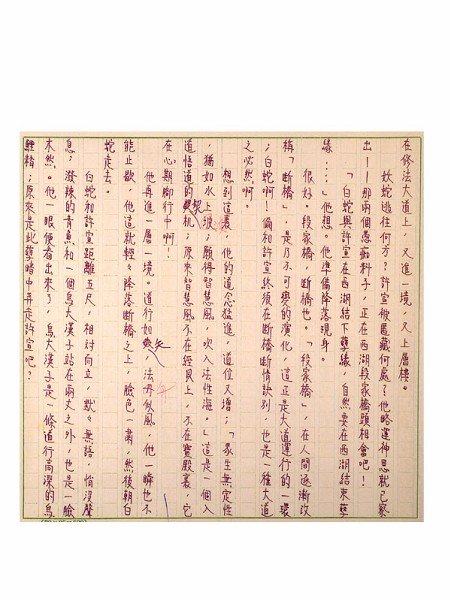 在修法大道上，又進一境，又上層樓。
妖蛇逃往何方？許宣被匿藏何處？他略運神思就已察
出！——那兩個愚痴料子，正在西湖段家橋頭相會吧！
「白蛇與許宣在西湖結下孽緣，自然要在西湖結束孽
緣……」他想。他準備降落現身。
很好。段家橋，斷橋也。「段家橋」，在人間遞漸改
稱「斷橋」，是乃不可變的演化，這正是大道運行的一環
；白蛇啊！倆和許宣終須在斷橋斷情訣別，也是一種大道
之必然啊。
想到這裏，他的道念猛進，道位又增；「眾生無定性
，猶如水上波；願得智慧風，吹入法性海。」這是一個入
道悟道的契机；原來智慧風不在經貝上，不在寶殿裏，它
在心，期御行中啊！
他再進一層一境。道行如矢，法丹似風，他一瞬也不
能止歇，他這就輕輕降落斷橋之上，臉色一肅，然後朝白
蛇走去。
白蛇和許宣距離五尺，相對向立，默々無語，悄沒聲
息；潑辣的青魚和一個烏大漢子站在兩丈之外，也是一臉
木然。他一眼便看出來了，烏大漢子是一條道行高深的烏
鯉精；原來是此孽暗中弄走許宣吧？